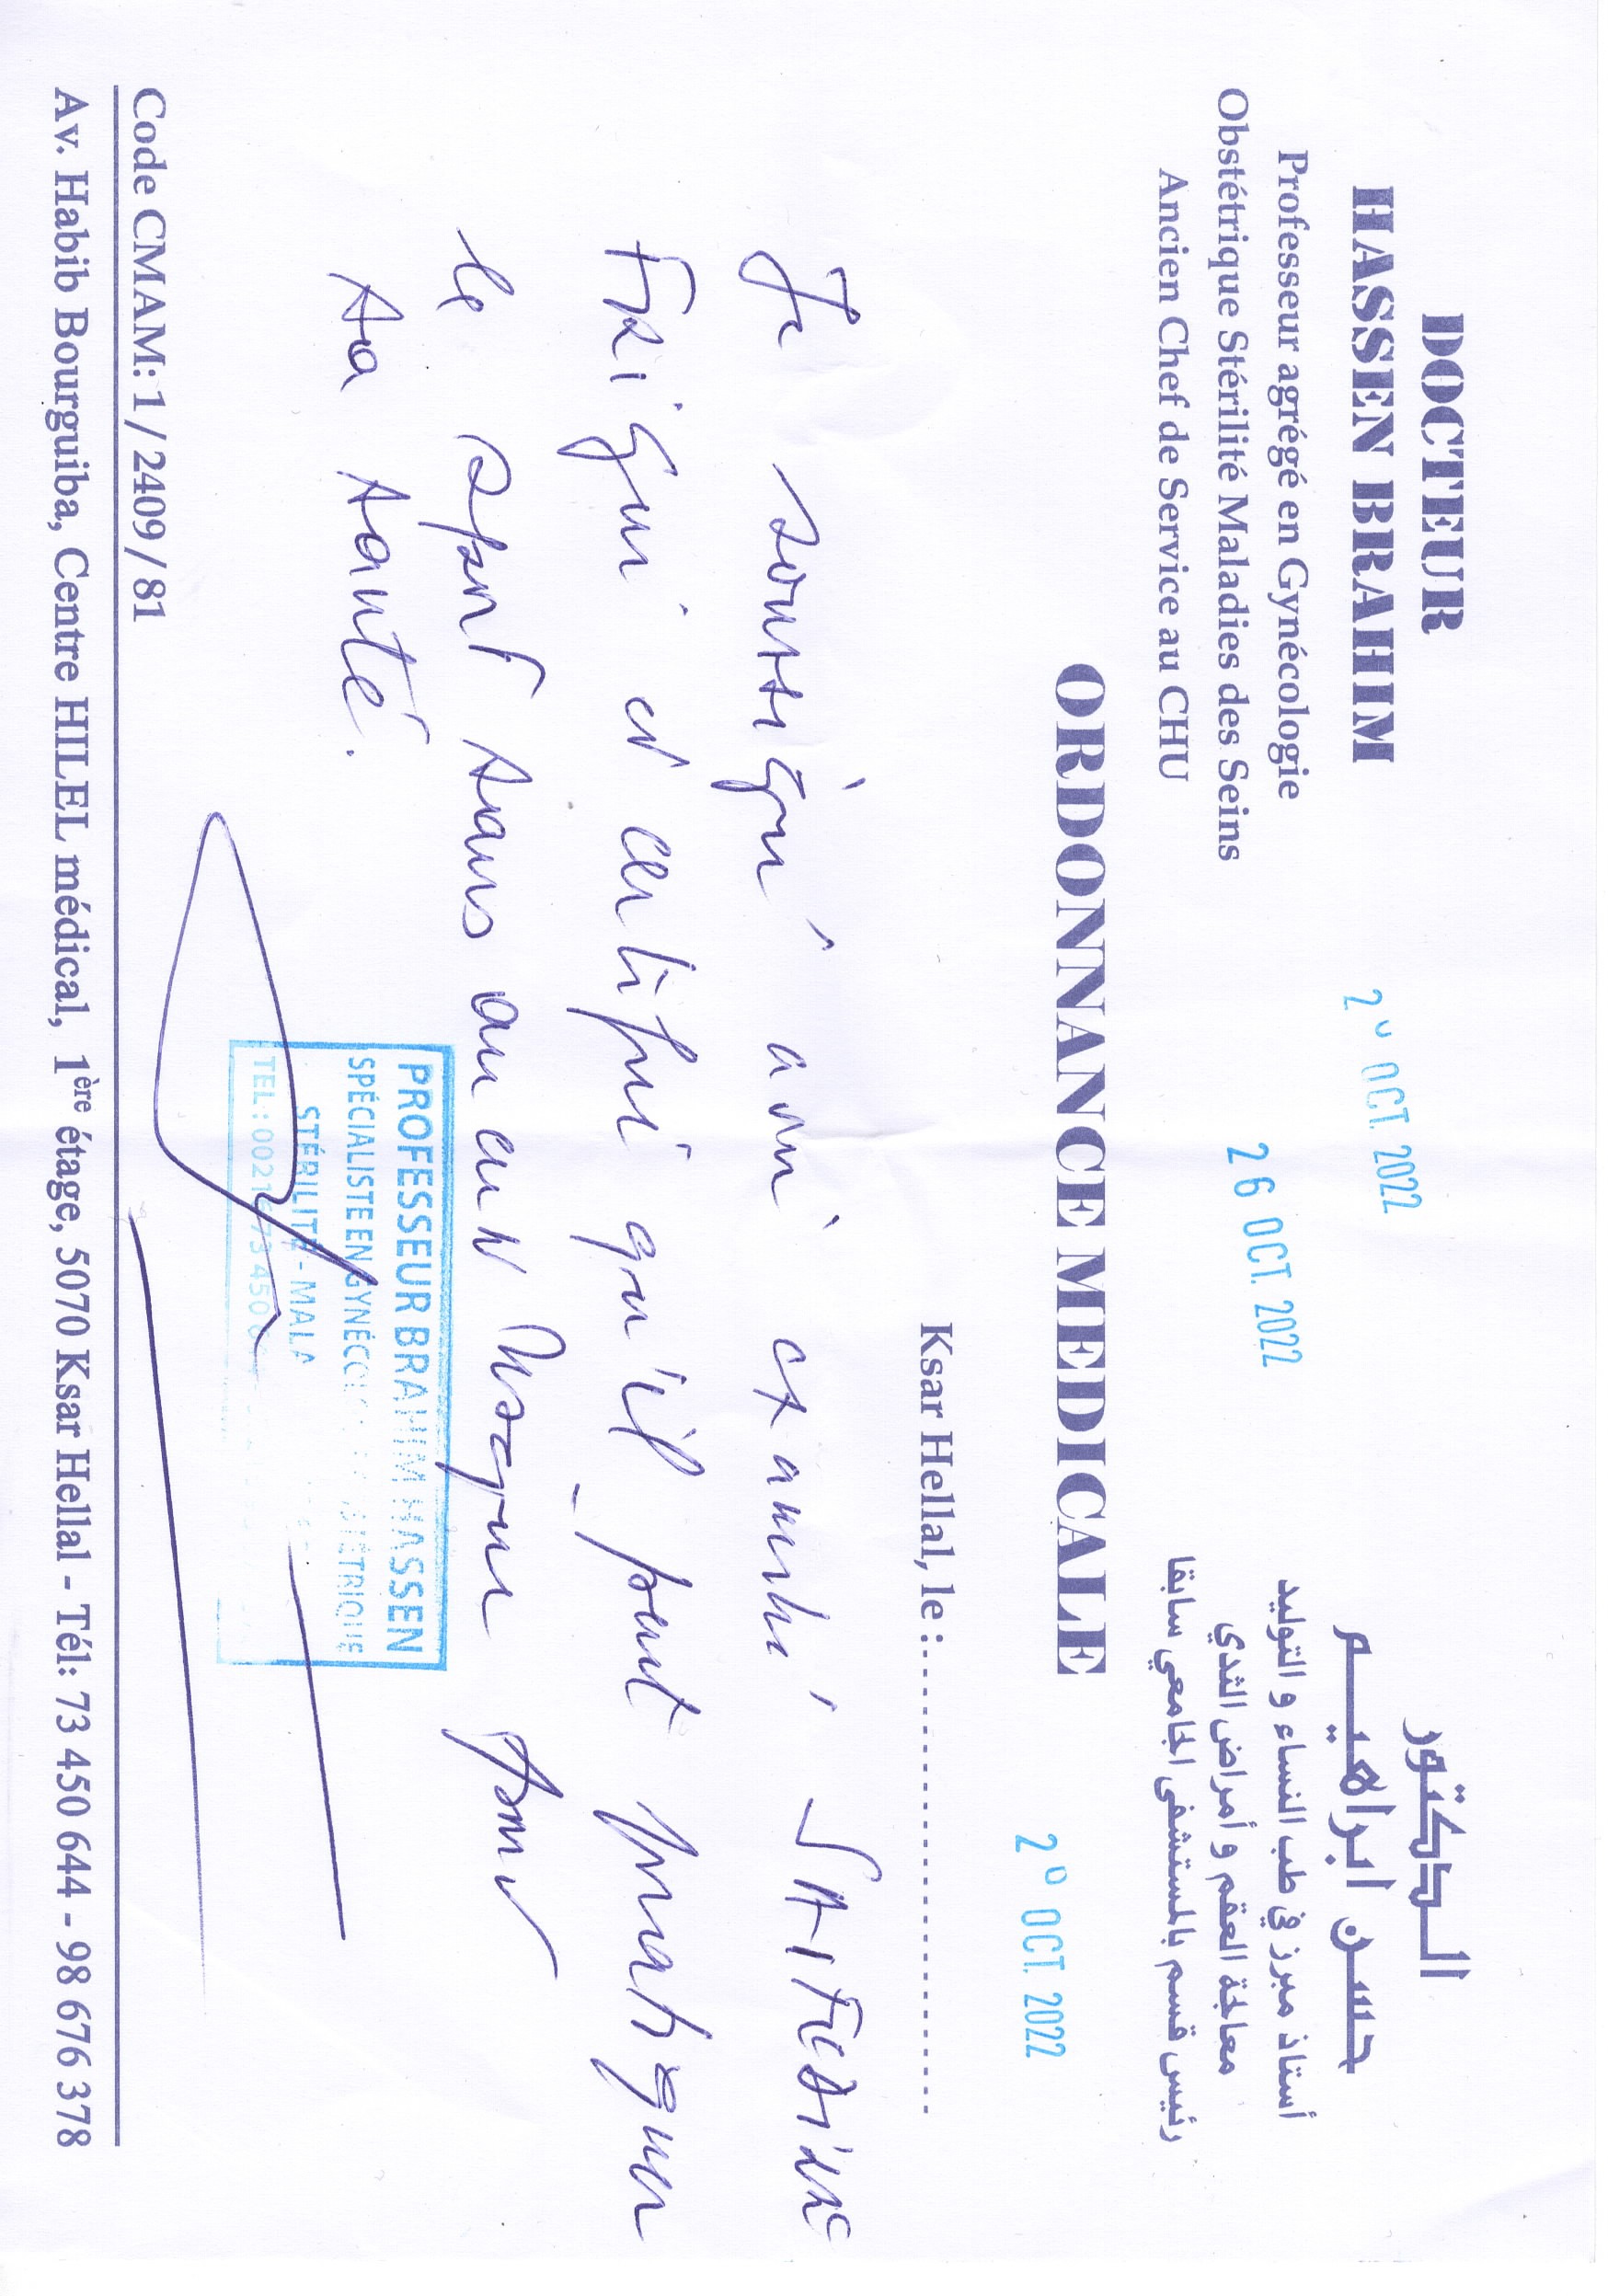 DOCTEUR
HASSEN BRAHIM
Professeur agrégé en Gynécologie
Obstétrique Stérilité Maladies des Seins
Ancien Chef de Service au CHU
الدكتور
حسن ابراهيم
أستاذ مبرز في طب النساء و التوليد
معالجة العقم و أمراض الثدي
رئيس قسم بالمستشفى الجامعي سابقا
OCT. 2022
26 OCT. 2022
OCT. 2022
ORDONNANCE MEDICALE
Ksar Hellal, le :
Je soussigné avoir examiné
Fzigui et certifie qu'il peut pratiquer
le sport sans aucun risque pour
sa santé.
PROFESSEUR BRAHIM HASSEN
SPÉCIALISTE EN
STÉRILITÉ - MALA
TEL: 0021
Code CMAM: 1 / 2409 / 81
Av. Habib Bourguiba, Centre HILEL médical, 1ère étage, 5070 Ksar Hellal - Tél: 73 450 644 - 98 676 378